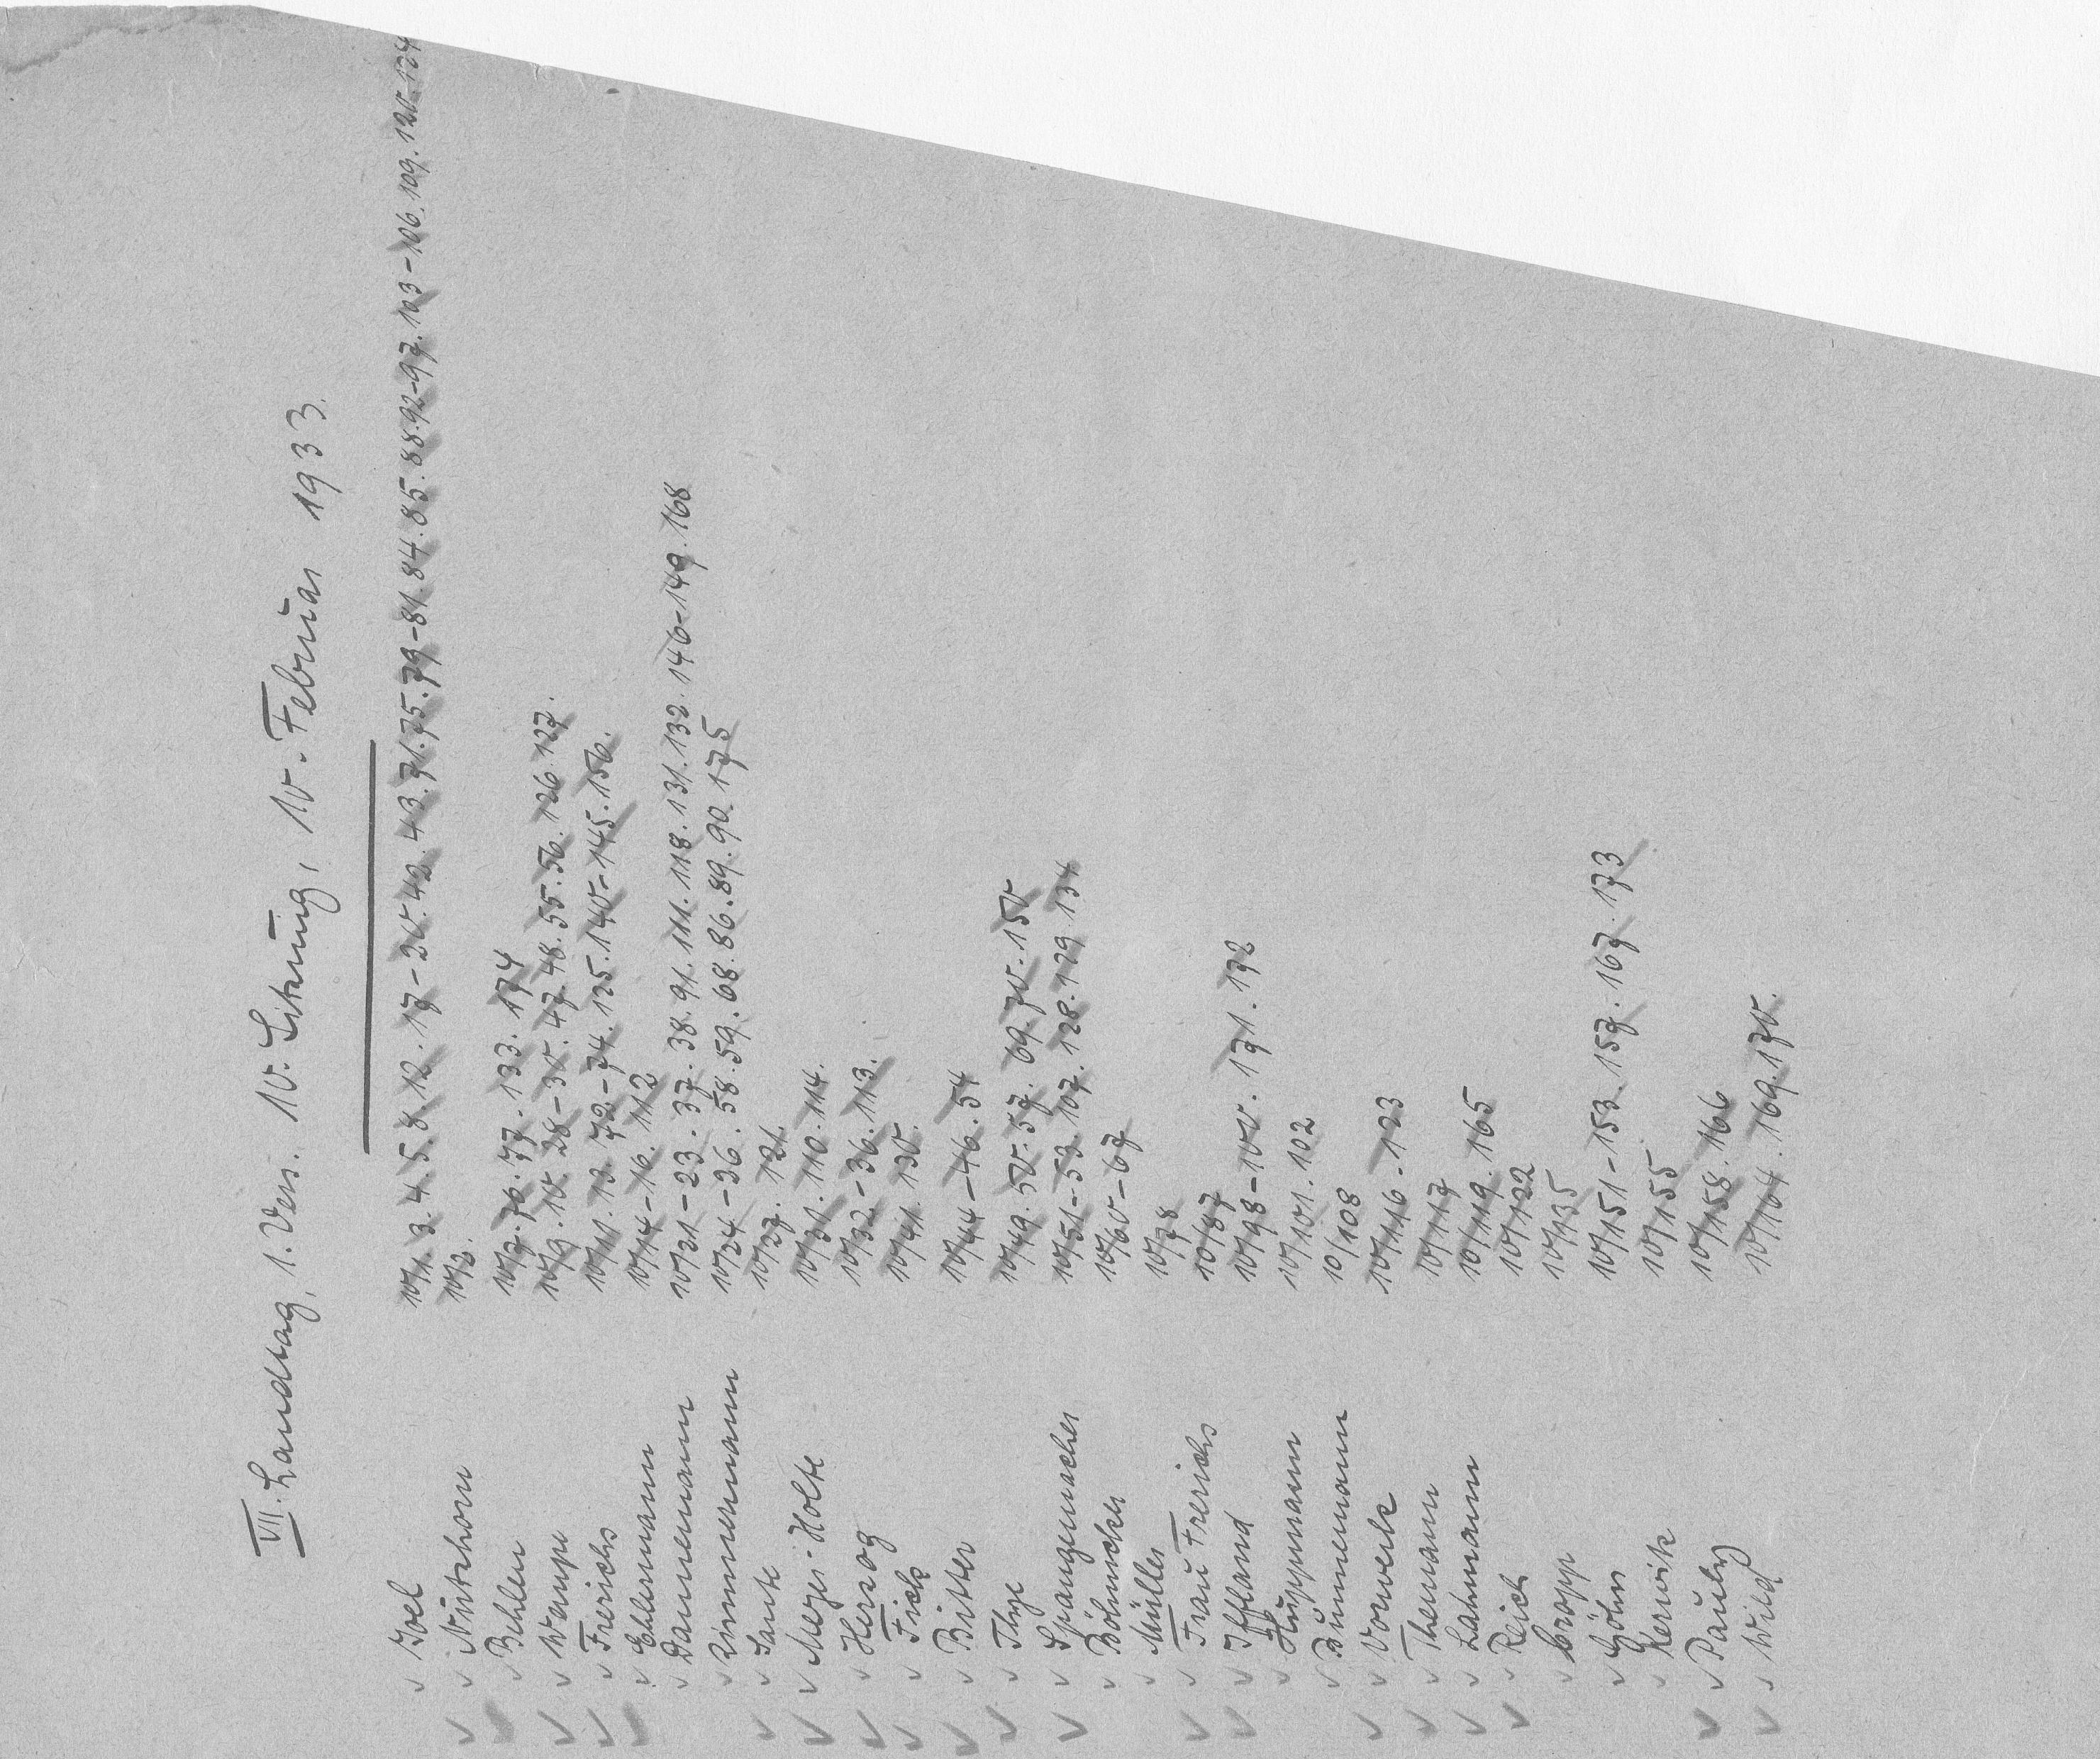 VII. Landtag, 1. Vers. 10. Sitzung, 10. Februar 1933.
Joel 10/1. 3. 4. 5. 8. 12. 17-20. 42. 43. 71. 75. 79-81. 84. 85. 88. 92-97. 103-106. 109. 120. 124
Wittkhorn 10/2.
Behlen 10/7. 76. 77. 133. 174
Wempe 10/9. 10. 28-30. 47. 48. 55. 56. 126. 127.
Frerichs 10/11. 13. 72-74. 125. 140-145. 156.
Ehlermann 10/14-16. 112
Dannemann 10/21-23. 37. 38. 91. 111. 118. 131. 132. 146-149. 168
Zimmermann 10/24-26. 58. 59. 68. 86. 89. 90. 175
Sante 10/27. 121.
Meyer-Holte 10/31. 110. 114.
Herzog 10/32-36. 113.
Fick 10/41. 130.
Bitter 10/44-46. 54
Thye 10/49. 50. 57. 69. 70. 150
Spangemacher 10/51-53. 107. 128. 129. 134
Böhmcker 10/60-67
Müller 10/78
Frau Frerichs 10/87
Iffland 10/98-100. 171. 172
Hüppmann 10/101. 102
Bünnemann 10/108
Vorwerk 10/116-123
Themann 10/117
Lahmann 10/119. 165
Reich 10/122
Cropp 10/135
Göhrs 10/151-153. 157. 167. 173
Kerwitz 10/155
Pauly 10/158. 166
Wild 10/164. 169. 170.